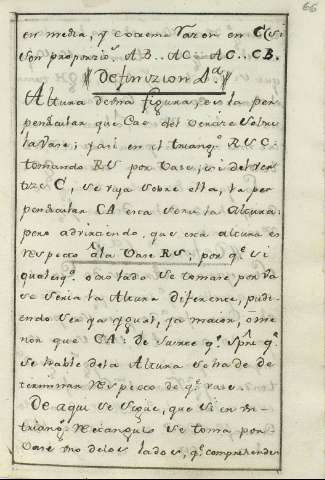 66
en media, y extrema razon en C (si
son proporzio.s AB.. AC.. AC.. CB.
Definizion 4.a
Altura de una figura, es la per
pendicular que Cae del Vertize sobre
la Vase; y asi en el triang.o RSC.
tomando RS por Vase, si del ver
tize C, se vaja sobre ella, la per
pendicular CA esta seria la Altura.
pero advirtiendo, que esta altura es
respecto â la Vase RS; por q.e si
qualesq.a otro lado se tomare por Va
se seria la Altura diferente, pudi
endo ser ya ygual, ya maior, ô me
nor que CA: de suerte q.e sp̂re q.e
se hable de la Altura se ha de de
terminar respecto de q.e vase.
De aqui se sigue, que si en un
triang.o Rectangulo se toma por
Vase uno de los lados, q.e comprenden